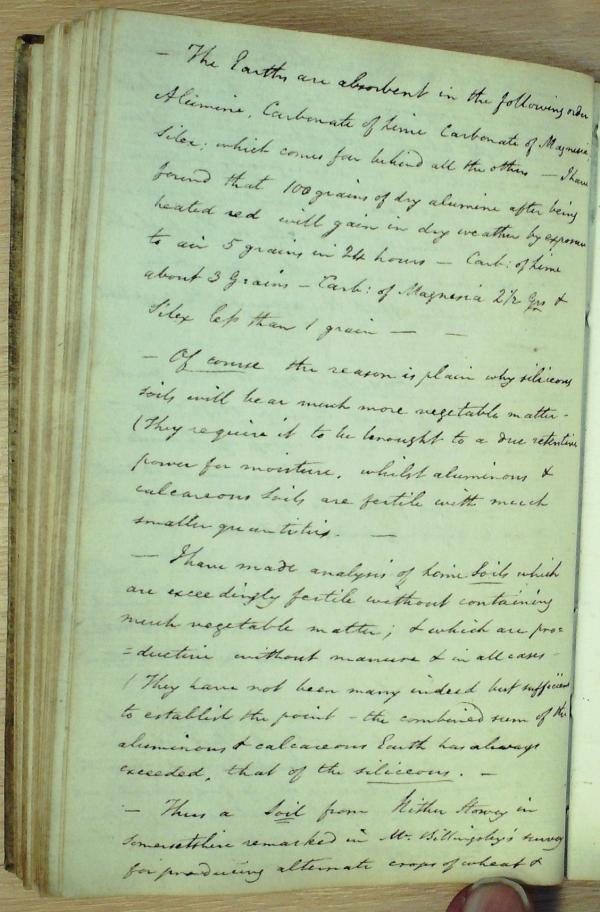 — The Earths are absorbent in the following order
Alumine, Carbonate of Lime Carbonate of Magnesia
Silex; which comes far behind all the others — I have
found that 100 grains of dry alumine after being
heated red will gain in dry weather by exposure
to air 5 grains in 24 hours — Carb: of Lime
about 3 Grains — Carb: of Magnesia 2 1/2 Grs &
Silex less than 1 grain — —
— Of course the reason is plain why siliceous
soils will bear much more vegetable matter -
(They require it to be brought to a due retentive
power for moisture, whilst aluminous &
calcareous soils are fertile with much
smaller quantities. —
— I have made analysis of some Soils which
are exceedingly fertile without containing
much vegetable matter; & which are pro=
=ductive without manure & in all cases -
(They have not been many indeed but sufficient
to establish the point - the combined sum of the
aluminous & calcareous Earth has always
exceeded, that of the siliceous. —
— Thus a Soil from Nither Stowey in
Somersetshire remarked in Mr. Billingsley's survey
for producing alternate crops of wheat &